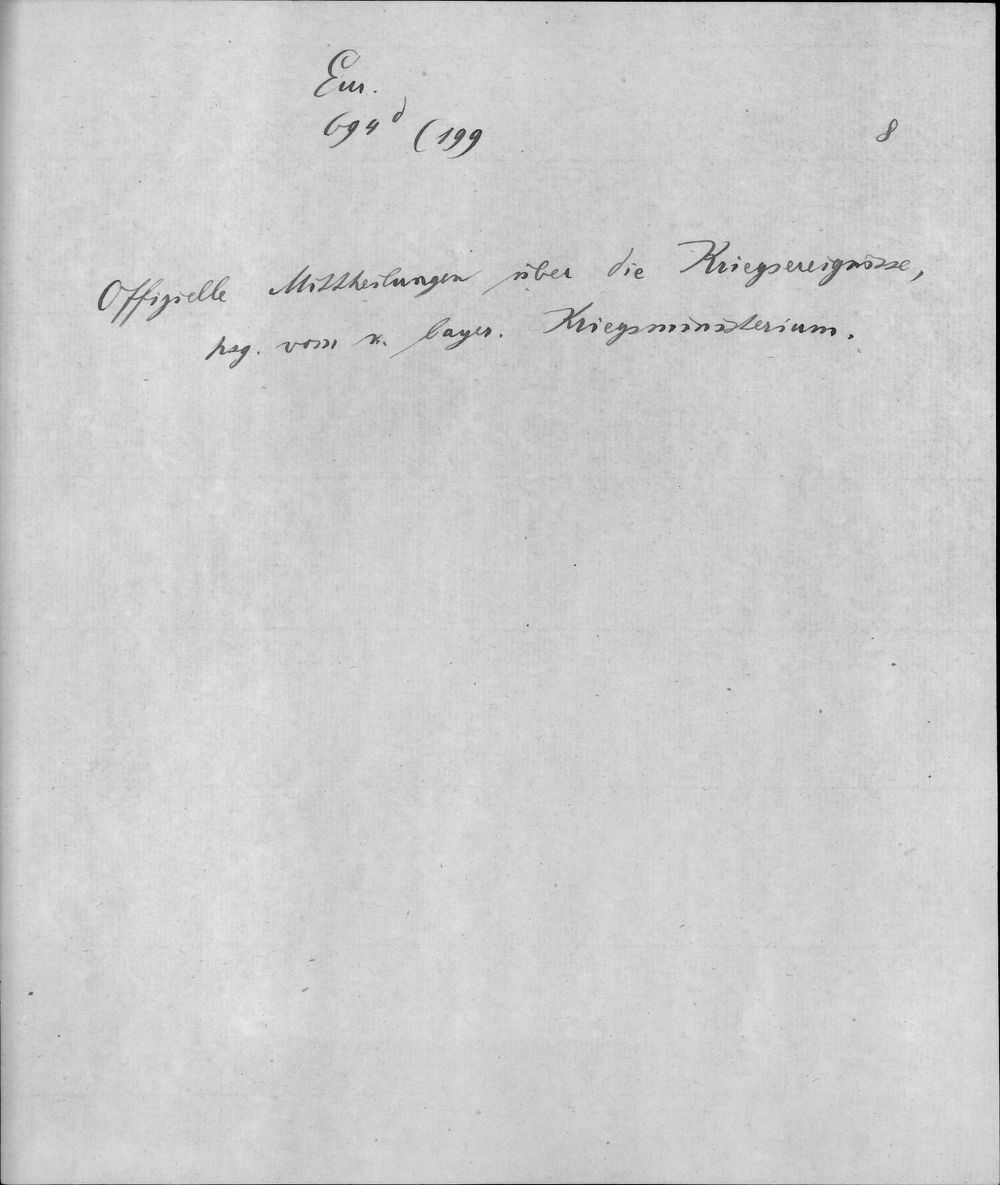 Eur.
694 d (199
8
Offizielle Mittheilungen über die Kriegsereignisse,
hsg. vom k. bayer. Kriegsministerium.